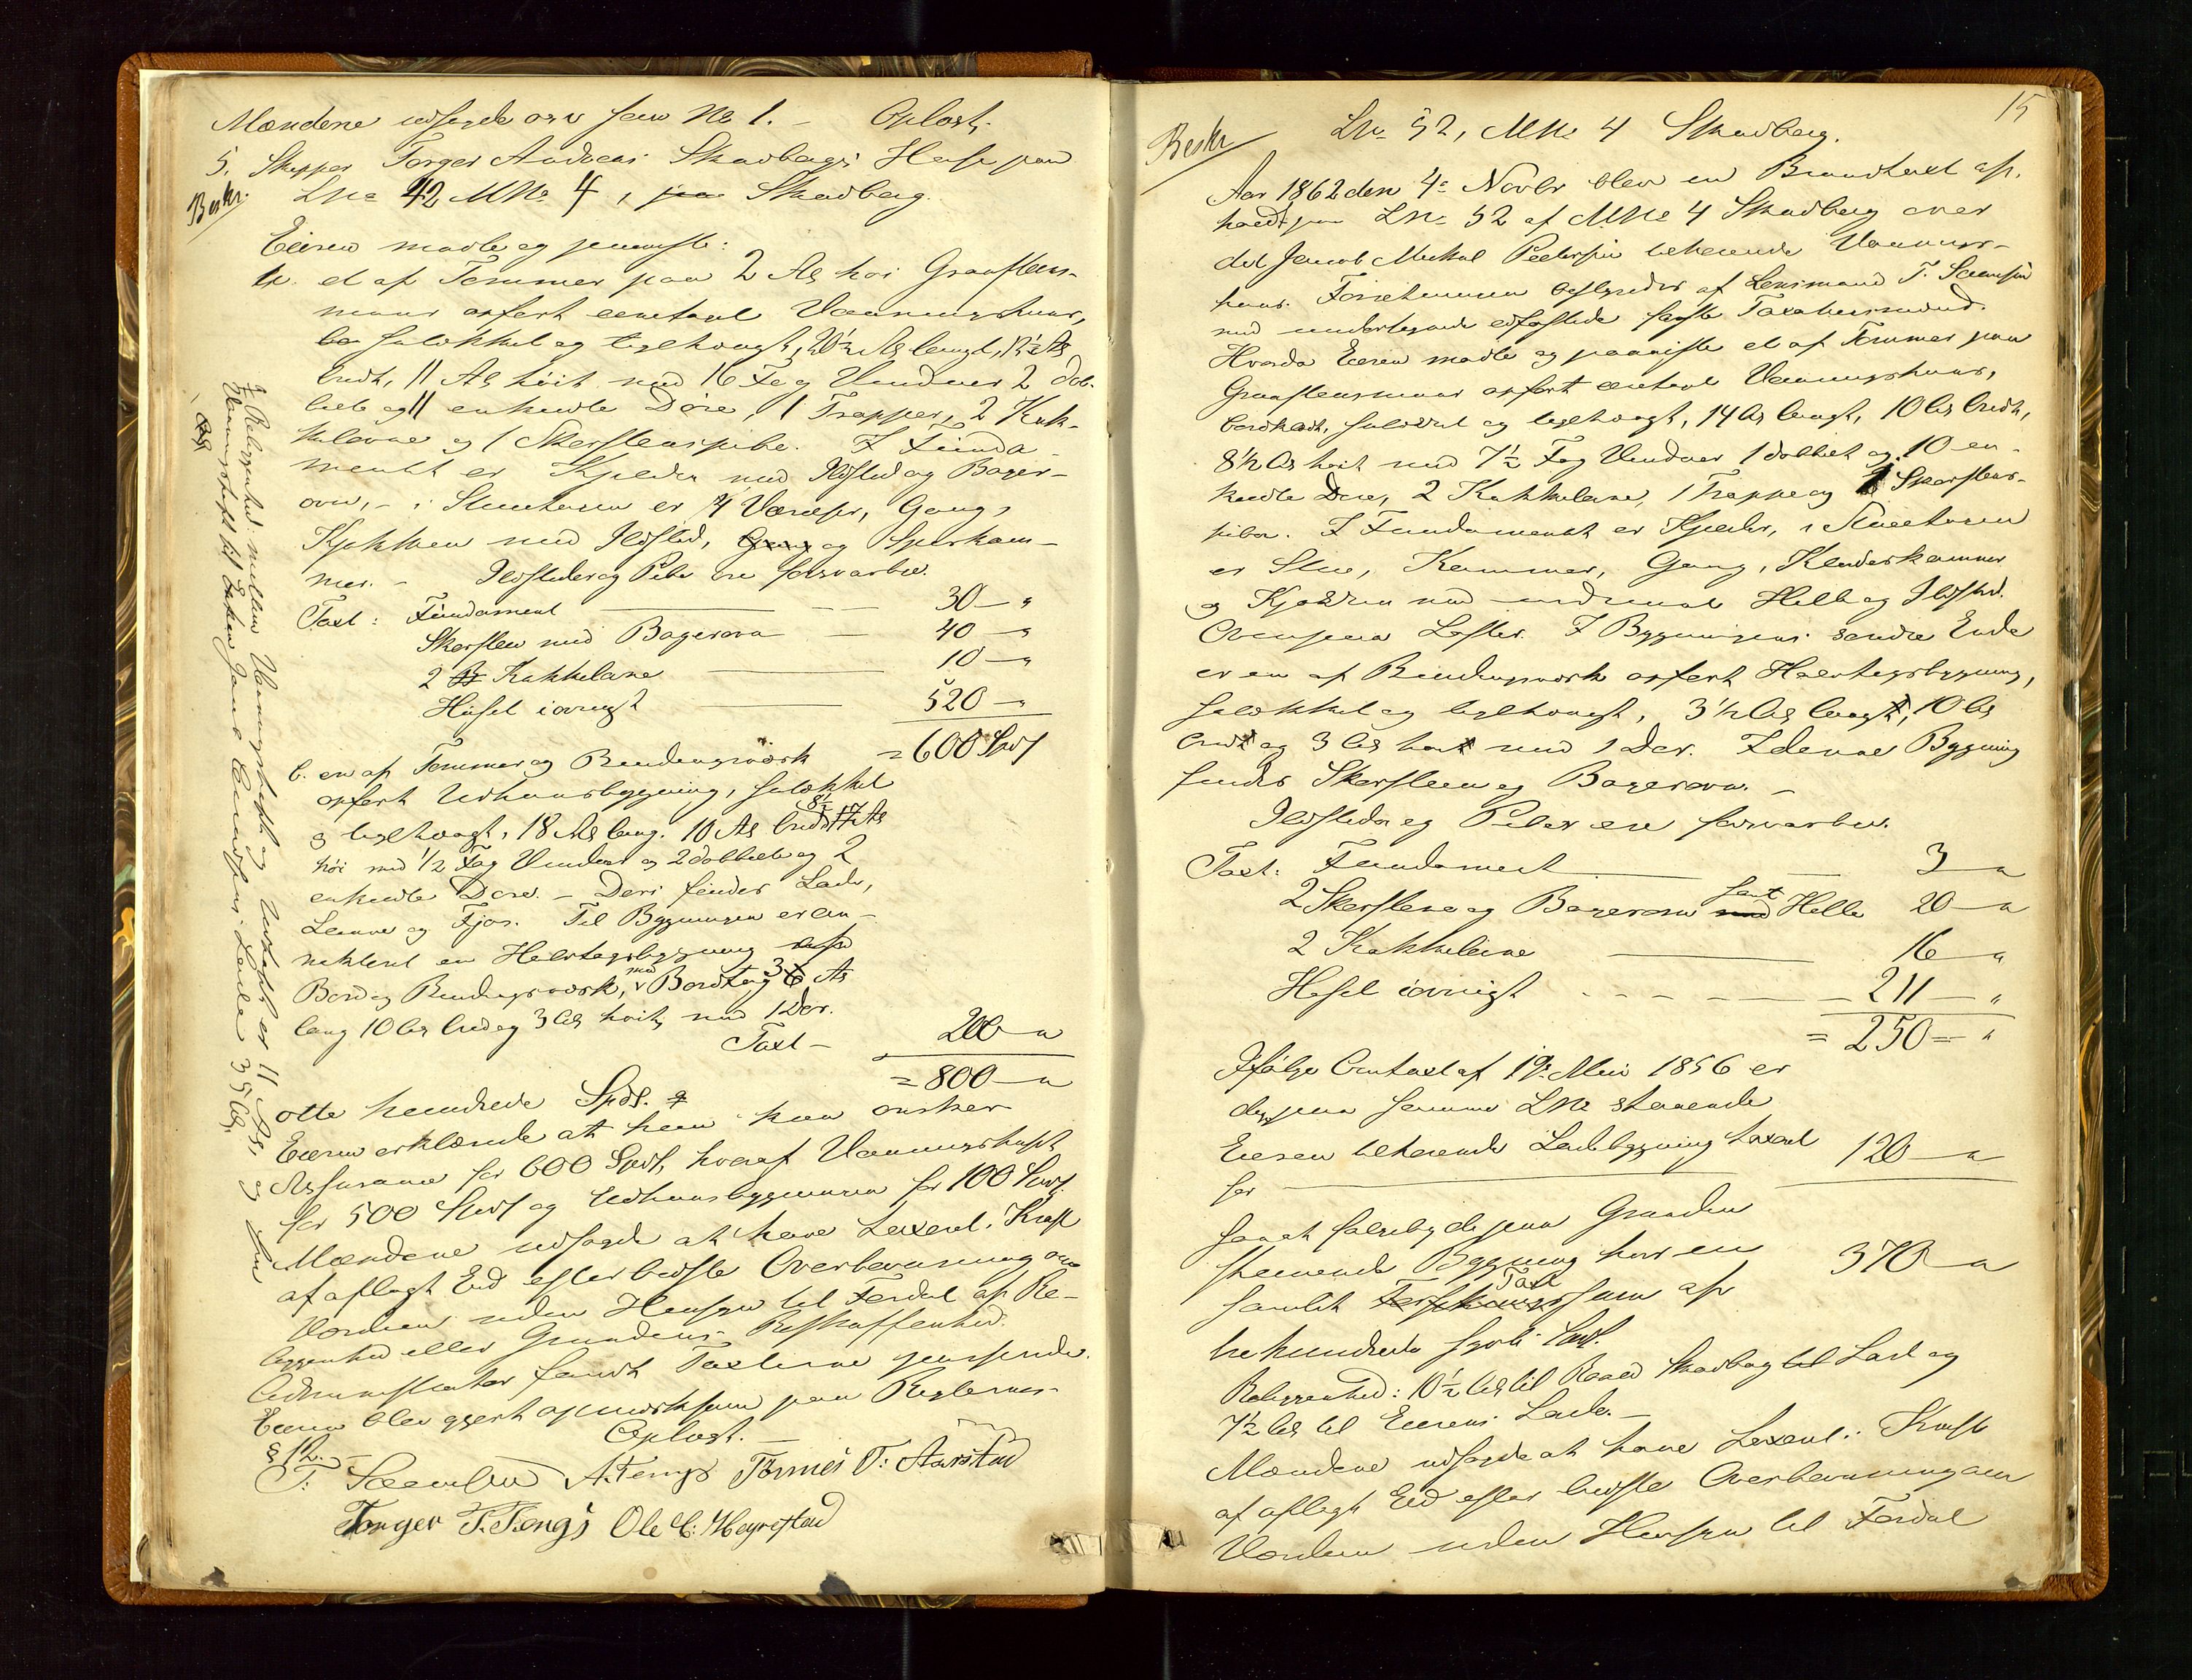 Mændene udsagde osv som No 1. – Oplæst.
5. Skipper Torger Andreas Skadbergs Huse paa
Beskr. LNo 42 MNo 4, Skadberg.
Eieren mødte og paaviste:
a. et af Tømmer paa 2 Al. høi Graasteens-
muur opført eenetages Vaaningshuus,
fuldkklædt og teglhængt, 20½ Al. længt, 12½ Al.
bredt, 11 Al. høit med 16 Fag Vinduer 2 dob-
belte og 11 enkelte Døre, 1 Trappe, 2 Kak-
kelovne og 1 Skorsteenspibe. I Funda-
mentet er Kjelder med Ildsted og Bager-
ovn, – i Stueetagen er 4 Værelser, Gang,
Kjøkken med Ildsted, og Spiskam-
mer. – Ildsteder og Pibe ere forsvarlige.
Taxt: Fundament — 30 – "
Skorsteen med Bagerovn — 40 – "
2 Kakkelovne — 10 – "
Huset iøvrigt — 520 – "
= 600 Spd
b. en af Tømmer og Bindingsværk
opført Udhuusbygning,
og teglhængt, 18 Al. lang. 10 Al. bred 8½ Al.
høi med ½ Fag Vinduer og 2 dobbelte og 2
enkelte Døre. – Deri findes Lade,
og Fjøs. Til Bygningen er an-
nekteret en Halvtagsbygning
Bord og Bindingsværk, med Bordtag 3 Al.
lang 10 Al. bred og 3 Al. høit, med 1 Dør.
Taxt – 200 – "
= 800 – "
otte hundrede Spd.
Eieren erklærede at han kun ønsker
Assurance for 600 Spd, hvoraf Vaaningshuset
for 500 Spd og Udhuusbygningen for 100 Spd.
Mændene udsagde at have taxeret i Kraft
af aflagt Eed efter bedste Overbeviisning om
Værdien uden Hensyn til Fordel af Be-
liggenhed eller Grundens Beskaffenhed.
Administrator fandt Taxterne passende.
Eieren blev gjort opmærksom paa Reglernes
§ 12. – Oplæst. –
T. Sæmsen A. Tengs Tormes T. Aarstad
Torger T. Tengs Ole C. Høyrestad
Beliggenhed: mellem Vaaningshuset og Udhuset er 11 Al. og fra
Vaaningshuset til Lade 35 Al.
15
Beskr LNo 52, MNo 4 Skadberg.
Aar 1862 den 4de Novbr blev en Brandtaxt af-
holdt paa LNo 52 af MNo 4 Skadberg over
det Jacob Mikal Pedersen tilhørende Vaanings-
huus. Forretningen bestyredes af Lensmand T. Sæmsen
med undertegnede edfæstede faste Taxationsmænd.
Hvorda Eieren mødte og paaviste et af Tømmer paa
Graasteensmuur opført eenetages Vaaningshuus,
bordklædt, og teglhængt, 14 Al. længt, 10 Al. bredt,
8½ Al. høit med 7½ Fag Vinduer 1 dobbelt og 10 en-
kelte Døre, 2 Kakkelovne, 1 Trappe og Skorsteens-
piber. I Fundamentet er Kjelder, i Stueetagen
er Stue, Kammer, Gang, Klædeskammer
og Kjøkken med indmuret Helle og Ildsted.
Ovenpaa Lofter. I Bygningens søndre Ende
er en af Bindingsværk opført Halvtagsbygning,
og teglhængt, 3½ Al. længt, 10 Al.
bredt og 3 Al. høit med 1 Dør. I denne Bygning
findes Skorsteen og Bagerovn. –
Ildsteder og Piber ere forsvarlige.
Taxt: Fundament — 3 – "
2 Skorstene og Bagerovn samt Helle 20 – "
2 Kakkelovne — 16 – "
Huset iøvrigt — 211 – "
= 250 – "
Ifølge Contract af 19de Mai 1856 er
den paa samme LNo staaende
Eieren tilhørende Ladebygning taxeret
for — 120 – "
saaat paa Grunden
staaende Bygning har en
samlet Taxt sum af 370 – "
tre hundrede Spd.
Beliggenhed: 10½ Al. til Skadberg Lade og
7½ Al. til Eierens Lade. –
Mændene udsagde at have taxeret i Kraft
af aflagt Eed efter bedste Overbeviisning om
Værdien uden Hensyn til Fordel